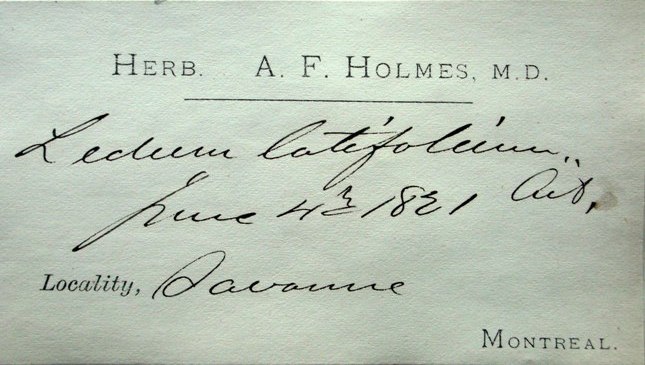 HERB. A. F. HOLMES, M.D.
Ledum latifolium
Ait,
June 4th 1821
Locality, Savanne
MONTREAL.